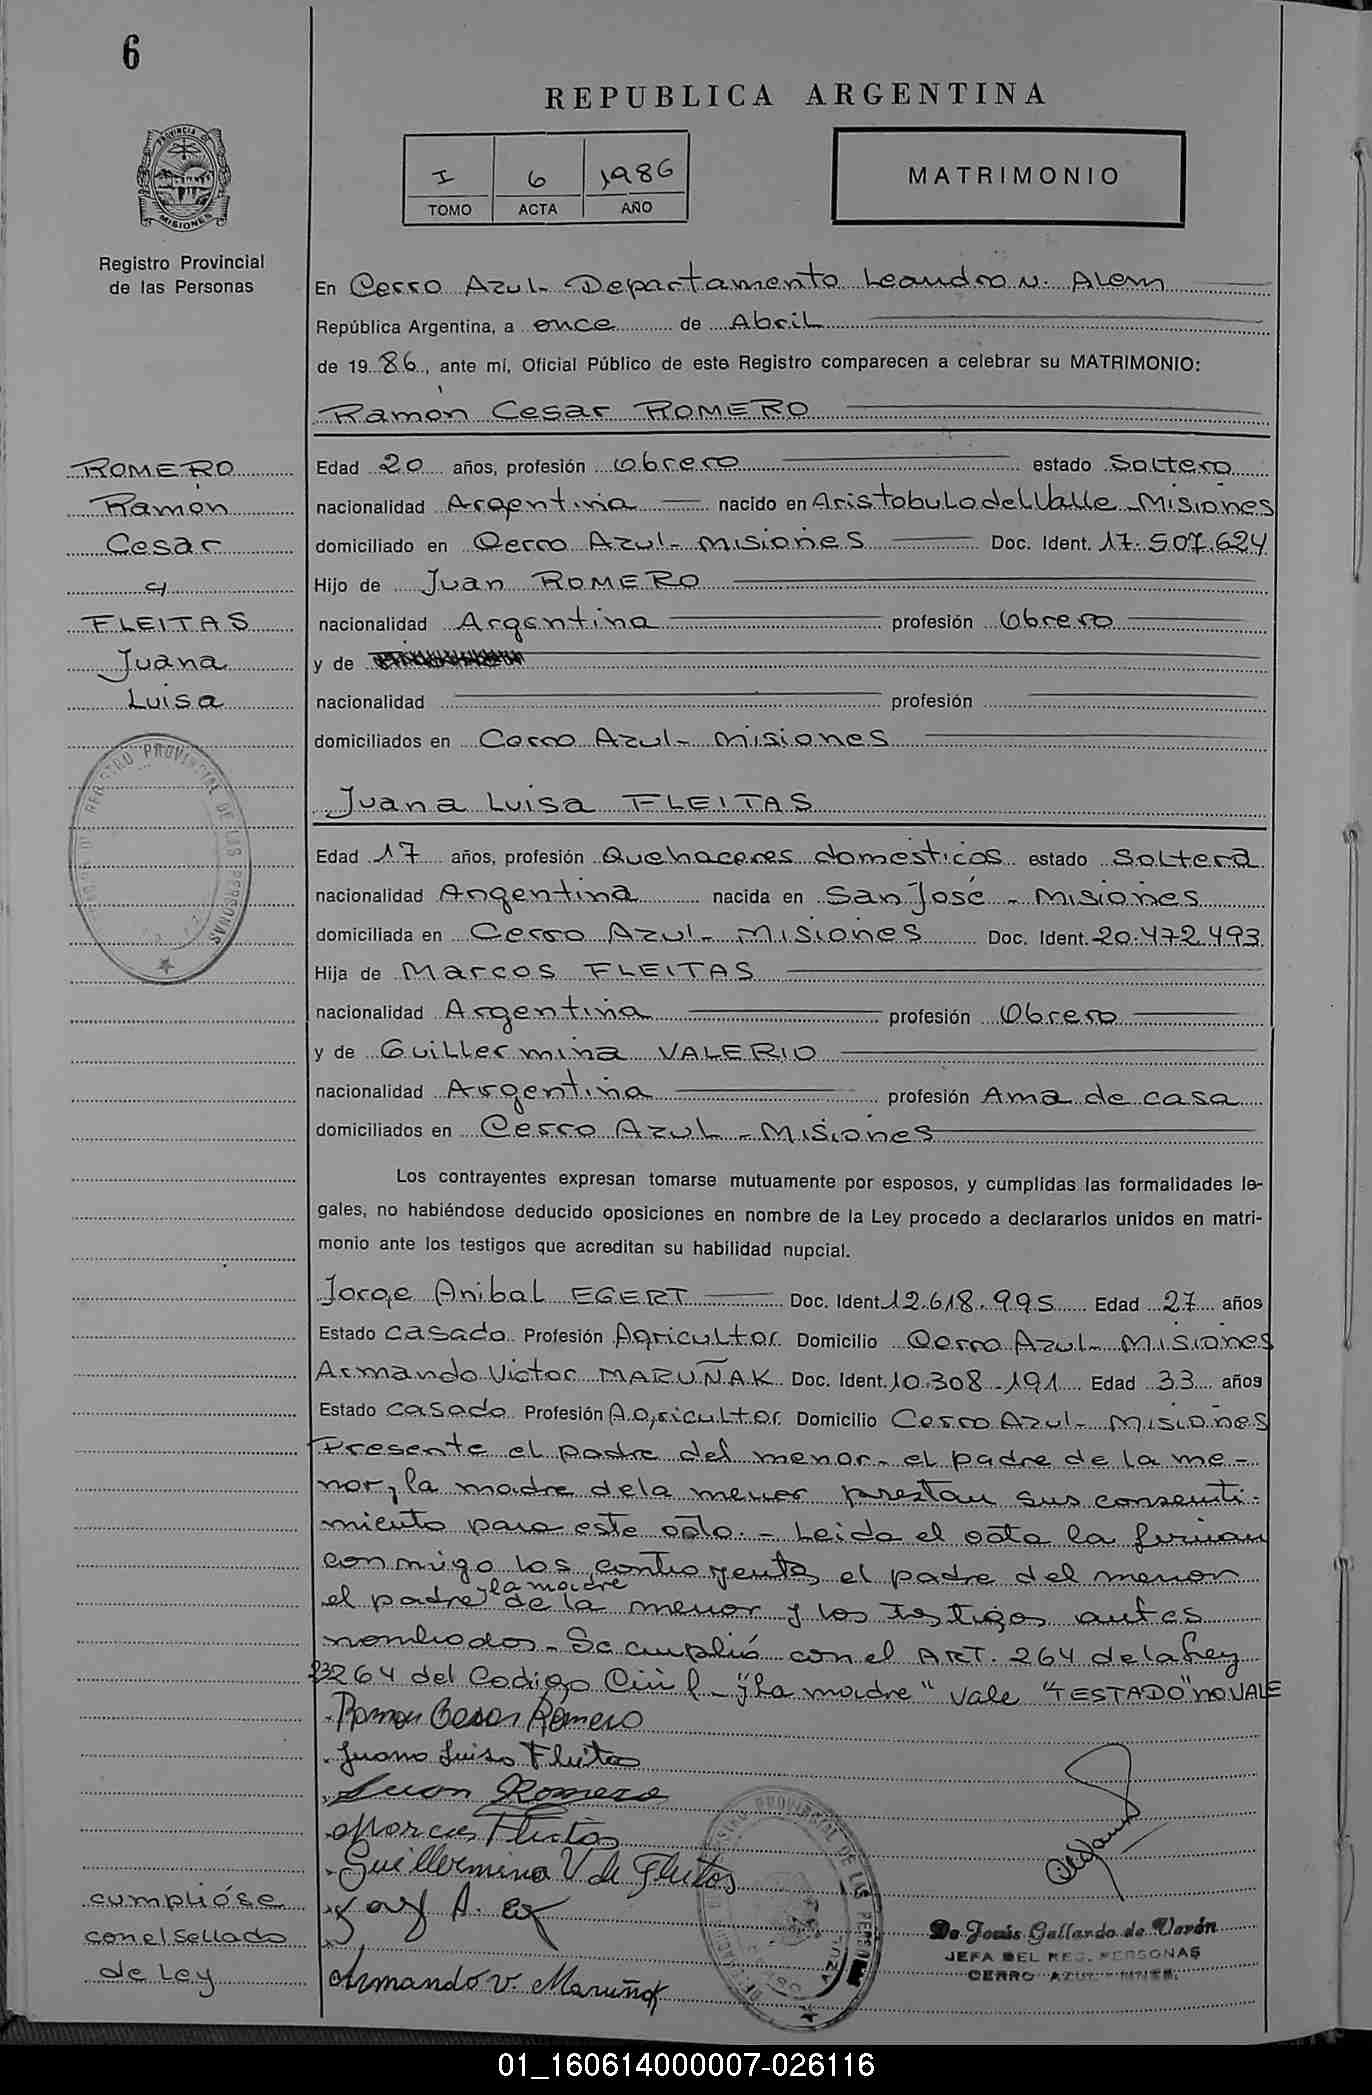 6
REPUBLICA ARGENTINA
I 6 1986
TOMO ACTA AÑO
MATRIMONIO
PROVINCIA DE
MISIONES
Registro Provincial
de las Personas
En Cerro Azul - Departamento Leandro N. Alem
República Argentina, a once de Abril
de 19 86, ante mi, Oficial Público de este Registro comparecen a celebrar su MATRIMONIO:
Ramón Cesar ROMERO
ROMERO
Ramón
Cesar
c/
FLEITAS
Juana
Luisa
Edad 20 años, profesión Obrero estado Soltero
nacionalidad Argentina nacido en Aristobulo del Valle - Misiones
domiciliado en Cerro Azul - Misiones Doc. Ident. 17.507.624
Hijo de Juan ROMERO
nacionalidad Argentina profesión Obrero
y de
nacionalidad profesión
domiciliados en Cerro Azul - Misiones
REGISTRO PROVINCIAL DE LAS PERSONAS
Juana Luisa FLEITAS
Edad 17 años, profesión Quehaceres domésticos estado Soltera
nacionalidad Argentina nacida en San José - Misiones
domiciliada en Cerro Azul - Misiones Doc. Ident. 20.472.493
Hija de Marcos FLEITAS
nacionalidad Argentina profesión Obrero
y de Guillermina VALERIO
nacionalidad Argentina profesión Ama de casa
domiciliados en Cerro Azul - Misiones
Los contrayentes expresan tomarse mutuamente por esposos, y cumplidas las formalidades le-
gales, no habiéndose deducido oposiciones en nombre de la Ley procedo a declararlos unidos en matri-
monio ante los testigos que acreditan su habilidad nupcial.
Jorge Anibal EGERT Doc. Ident. 12.618.995 Edad 27 años
Estado casado Profesión Agricultor Domicilio Cerro Azul - Misiones
Armando Victor MARUÑAK Doc. Ident. 10.308.191 Edad 33 años
Estado casado Profesión Agricultor Domicilio Cerro Azul - Misiones
Presente el padre del menor - el padre de la me -
nor, la madre de la menor prestan sus consenti-
miento para este acto. - Leida el acta la firman
conmigo los contrayentes, el padre del menor
el padre y la madre de la menor y los testigos antes
nombrados - Se cumplió con el ART. 264 de la Ley
23264 del Codigo Civil - "y la madre" vale "TESTADO" NO VALE
Ramon Cesar Romero
Juana Luisa Fleitas
Juan Romero
Marcos Fleitas
Guillermina V de Fleitas
Armando V. Maruñak
cumplióse
con el sellado
de Ley
De Jesús Gallardo de Verón
JEFA DEL REG. PERSONAS
CERRO AZUL - MNES.
01_160614000007-026116